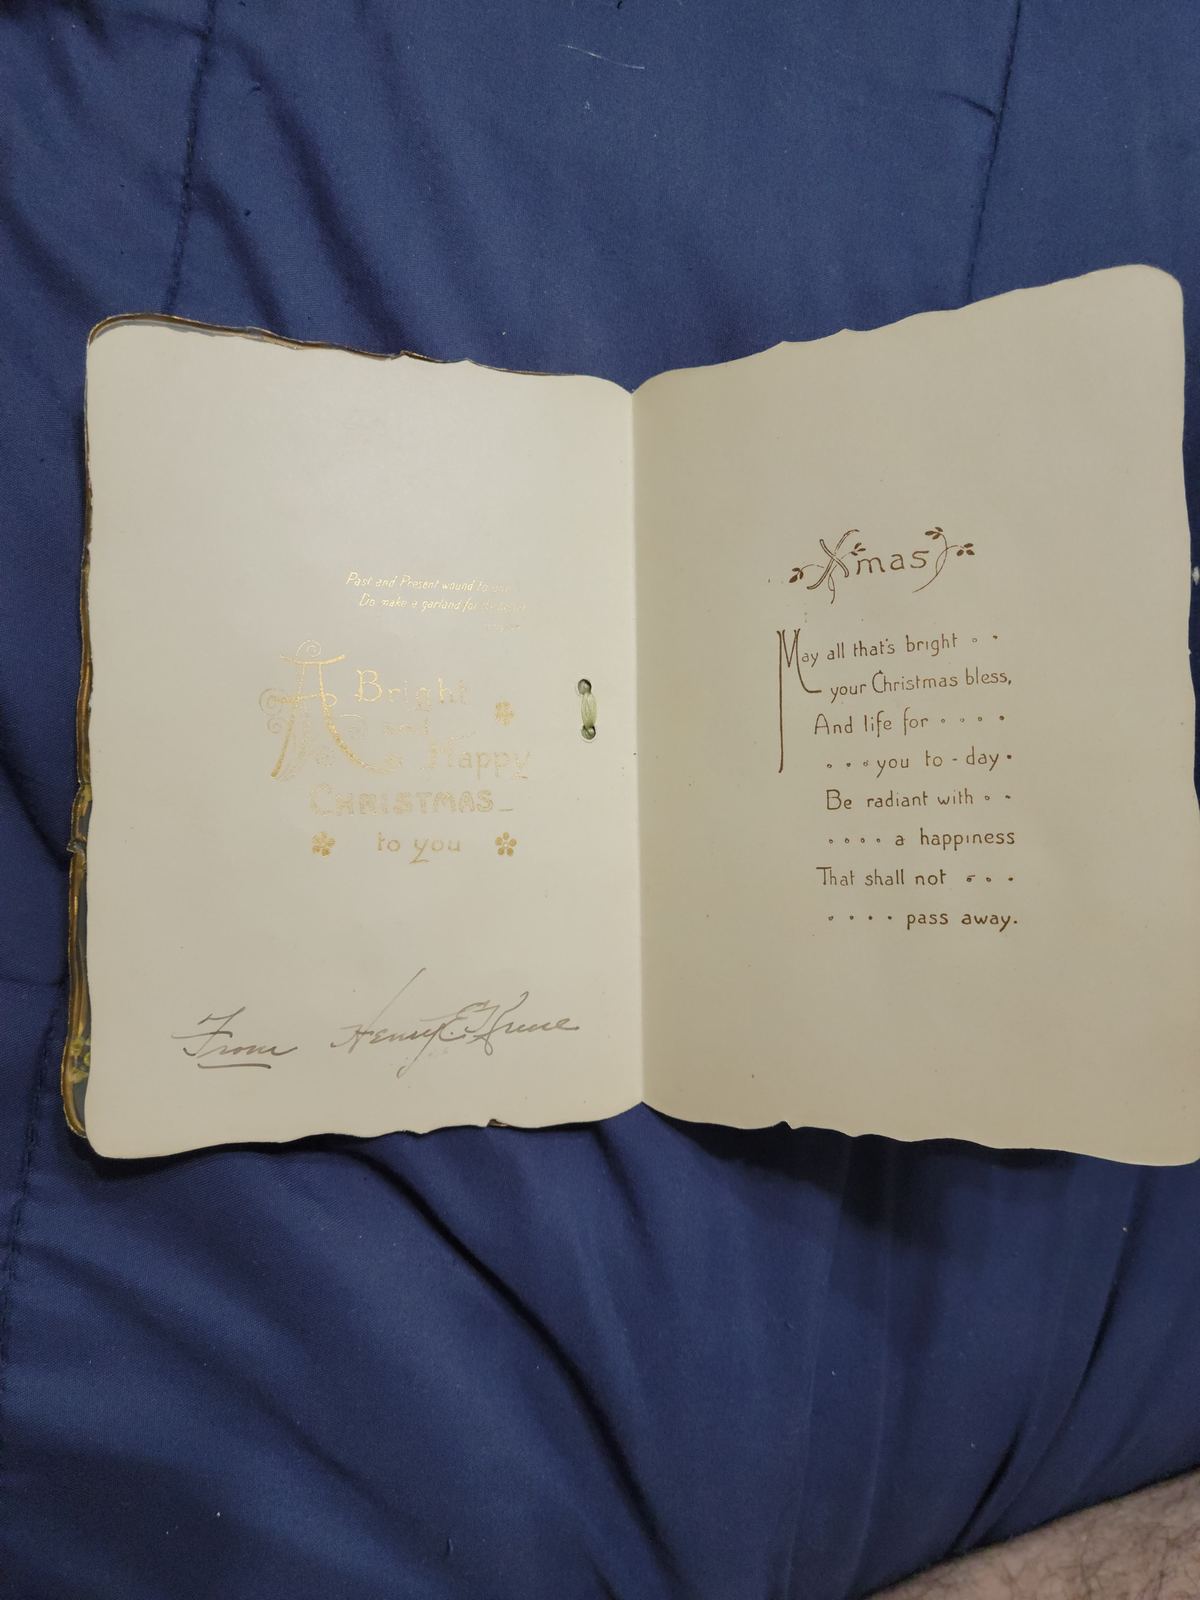 Past and Present wound to
Do make a garland for
A Bright
and
Happy
CHRISTMAS
to you
From Henry E.
Xmas
May all that's bright
your Christmas bless,
And life for
you to-day
Be radiant with
a happiness
That shall not
pass away.